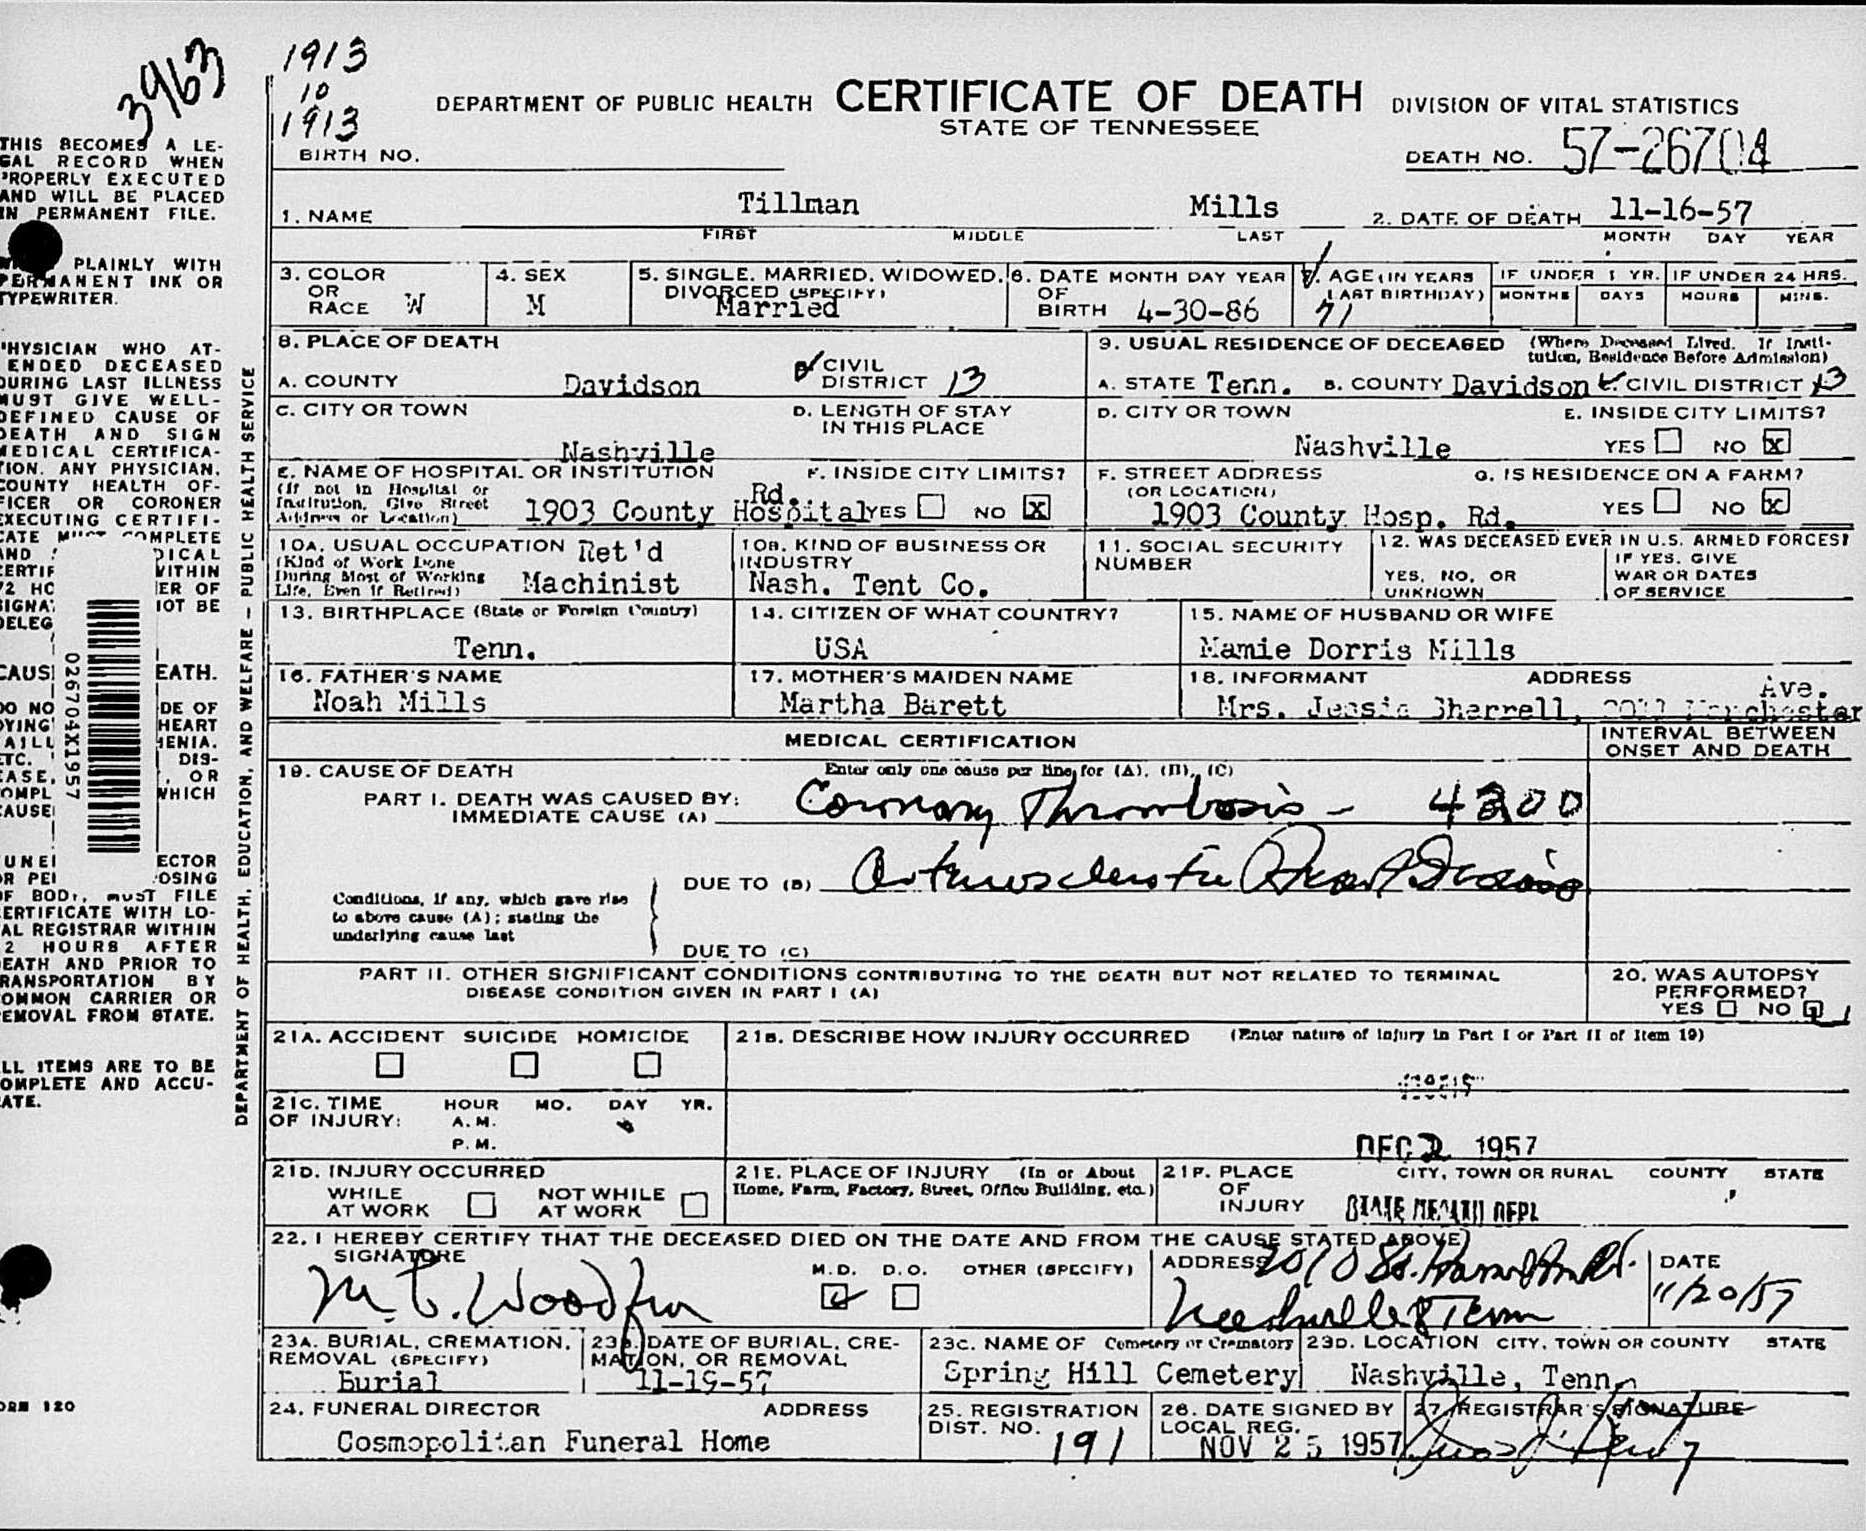 3963
1913
10
1913
DEPARTMENT OF PUBLIC HEALTH CERTIFICATE OF DEATH DIVISION OF VITAL STATISTICS
STATE OF TENNESSEE
BIRTH NO.
DEATH NO. 57-26704
1. NAME Tillman Mills 2. DATE OF DEATH 11-16-57
FIRST MIDDLE LAST MONTH DAY YEAR
3. COLOR OR RACE W
4. SEX M
5. SINGLE, MARRIED, WIDOWED, DIVORCED (SPECIFY) Married
6. DATE OF BIRTH MONTH DAY YEAR 4-30-86
7. AGE (IN YEARS LAST BIRTHDAY) 71
IF UNDER 1 YR. MONTHS DAYS
IF UNDER 24 HRS. HOURS MINS.
8. PLACE OF DEATH
A. COUNTY Davidson
CIVIL DISTRICT 13
C. CITY OR TOWN Nashville
D. LENGTH OF STAY IN THIS PLACE
E. NAME OF HOSPITAL OR INSTITUTION
(If not in Hospital or Institution, Give Street Address or Location) 1903 County Hospital Rd.
F. INSIDE CITY LIMITS?
YES NO X
9. USUAL RESIDENCE OF DECEASED (Where Deceased Lived. If Institution, Residence Before Admission)
A. STATE Tenn. B. COUNTY Davidson C. CIVIL DISTRICT 13
D. CITY OR TOWN Nashville
E. INSIDE CITY LIMITS?
YES NO X
F. STREET ADDRESS (OR LOCATION)
1903 County Hosp. Rd.
G. IS RESIDENCE ON A FARM?
YES NO X
10A. USUAL OCCUPATION Ret'd
(Kind of Work Done During Most of Working Life, Even if Retired) Machinist
10B. KIND OF BUSINESS OR INDUSTRY
Nash. Tent Co.
11. SOCIAL SECURITY NUMBER
12. WAS DECEASED EVER IN U.S. ARMED FORCES?
YES, NO, OR UNKNOWN
IF YES, GIVE WAR OR DATES OF SERVICE
13. BIRTHPLACE (State or Foreign Country)
Tenn.
14. CITIZEN OF WHAT COUNTRY?
USA
15. NAME OF HUSBAND OR WIFE
Mamie Dorris Mills
16. FATHER'S NAME
Noah Mills
17. MOTHER'S MAIDEN NAME
Martha Barett
18. INFORMANT ADDRESS
Mrs. Jessie Sherrell, Ave.
MEDICAL CERTIFICATION
INTERVAL BETWEEN ONSET AND DEATH
19. CAUSE OF DEATH Enter only one cause per line for (A), (B), (C)
PART I. DEATH WAS CAUSED BY:
IMMEDIATE CAUSE (A) Coronary Thrombosis - 4200
DUE TO (B) Arteriosclerotic Heart Disease
Conditions, if any, which gave rise
to above cause (A); stating the
underlying cause last
DUE TO (C)
PART II. OTHER SIGNIFICANT CONDITIONS CONTRIBUTING TO THE DEATH BUT NOT RELATED TO TERMINAL
DISEASE CONDITION GIVEN IN PART I (A)
20. WAS AUTOPSY PERFORMED?
YES NO
21A. ACCIDENT SUICIDE HOMICIDE
21B. DESCRIBE HOW INJURY OCCURRED (Enter nature of injury in Part I or Part II of Item 19)
21C. TIME OF INJURY: HOUR MO. DAY YR.
A.M.
P.M.
DEC 2 1957
21D. INJURY OCCURRED
WHILE AT WORK NOT WHILE AT WORK
21E. PLACE OF INJURY (In or About Home, Farm, Factory, Street, Office Building, etc.)
21F. PLACE OF INJURY CITY, TOWN OR RURAL COUNTY STATE
STATE HEALTH DEPT
22. I HEREBY CERTIFY THAT THE DECEASED DIED ON THE DATE AND FROM THE CAUSE STATED ABOVE
SIGNATURE M.D. D.O. OTHER (SPECIFY)
M. C. Woodfin
ADDRESS 2010 Rd.
Nashville 8 Tenn
DATE 11/20/57
23A. BURIAL, CREMATION, REMOVAL (SPECIFY)
Burial
23B. DATE OF BURIAL, CREMATION, OR REMOVAL
11-19-57
23C. NAME OF Cemetery or Crematory
Spring Hill Cemetery
23D. LOCATION CITY, TOWN OR COUNTY STATE
Nashville, Tenn.
24. FUNERAL DIRECTOR ADDRESS
Cosmopolitan Funeral Home
25. REGISTRATION DIST. NO. 191
26. DATE SIGNED BY LOCAL REG.
NOV 25 1957
27. REGISTRAR'S SIGNATURE
DEPARTMENT OF HEALTH, EDUCATION, AND WELFARE – PUBLIC HEALTH SERVICE
026704X1957
THIS BECOMES A LE-
GAL RECORD WHEN
PROPERLY EXECUTED
AND WILL BE PLACED
IN PERMANENT FILE.
PLAINLY WITH
PERMANENT INK OR
TYPEWRITER.
PHYSICIAN WHO AT-
ENDED DECEASED
DURING LAST ILLNESS
MUST GIVE WELL-
DEFINED CAUSE OF
DEATH AND SIGN
MEDICAL CERTIFICA-
TION. ANY PHYSICIAN,
COUNTY HEALTH OF-
FICER OR CORONER
EXECUTING CERTIFI-
CATE MUST COMPLETE
EATH.
ECTOR
OF BODY, MUST FILE
CERTIFICATE WITH LO-
AL REGISTRAR WITHIN
2 HOURS AFTER
EATH AND PRIOR TO
RANSPORTATION BY
OMMON CARRIER OR
EMOVAL FROM STATE.
LL ITEMS ARE TO BE
OMPLETE AND ACCU-
ATE.
ORM 120